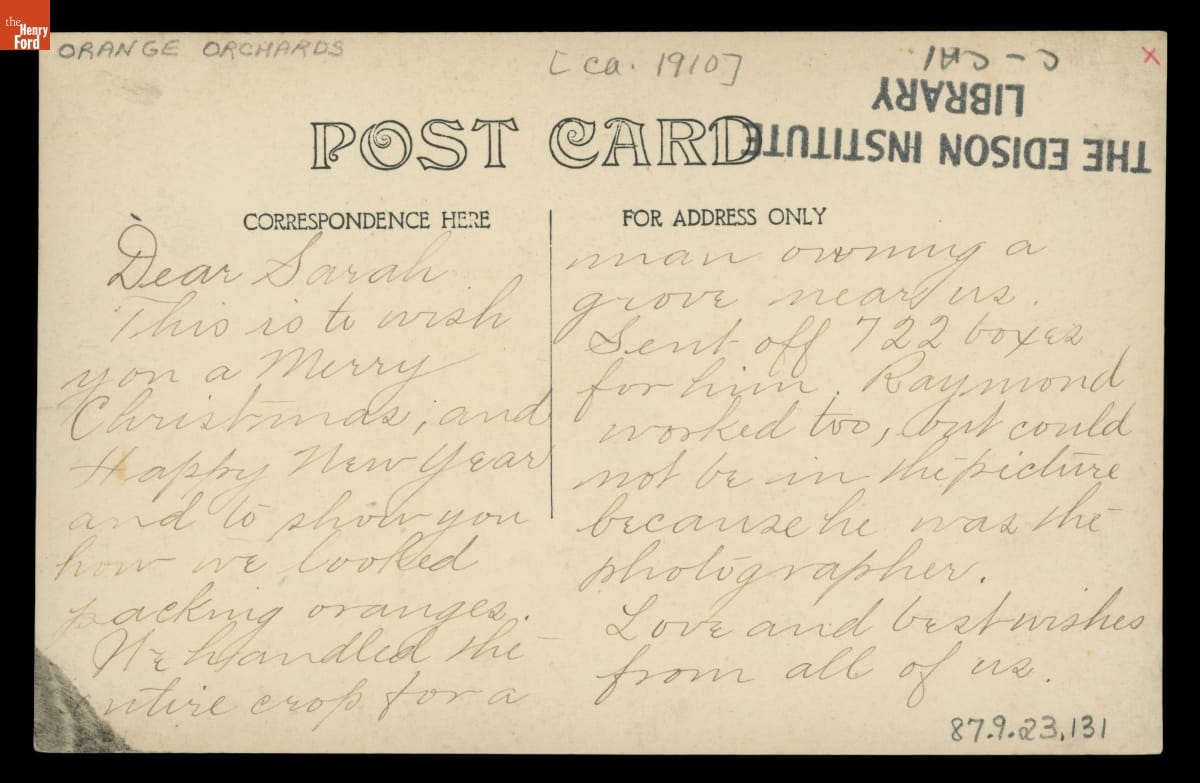 the
Henry
Ford
ORANGE ORCHARDS
[ca. 1910]
C-CAL.
x
THE EDISON INSTITUTE
LIBRARY
POST CARD
CORRESPONDENCE HERE
FOR ADDRESS ONLY
Dear Sarah
This is to wish
you a Merry
Christmas, and
Happy New Year
and to show you
how we looked
packing oranges.
We handled the
entire crop for a
man owning a
grove near us.
Sent off 722 boxes
for him. Raymond
worked too, but could
not be in the picture
because he was the
photographer.
Love and best wishes
from all of us.
87.9.23.131